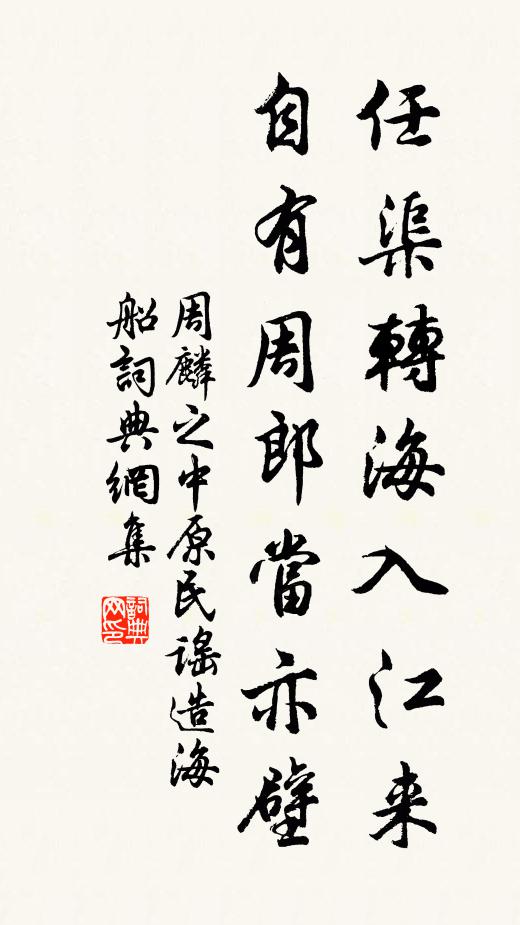 任渠轉海入江来
自有周郎當亦壁
周麟之中原民謠造海
船詞典網集
詞典
网印